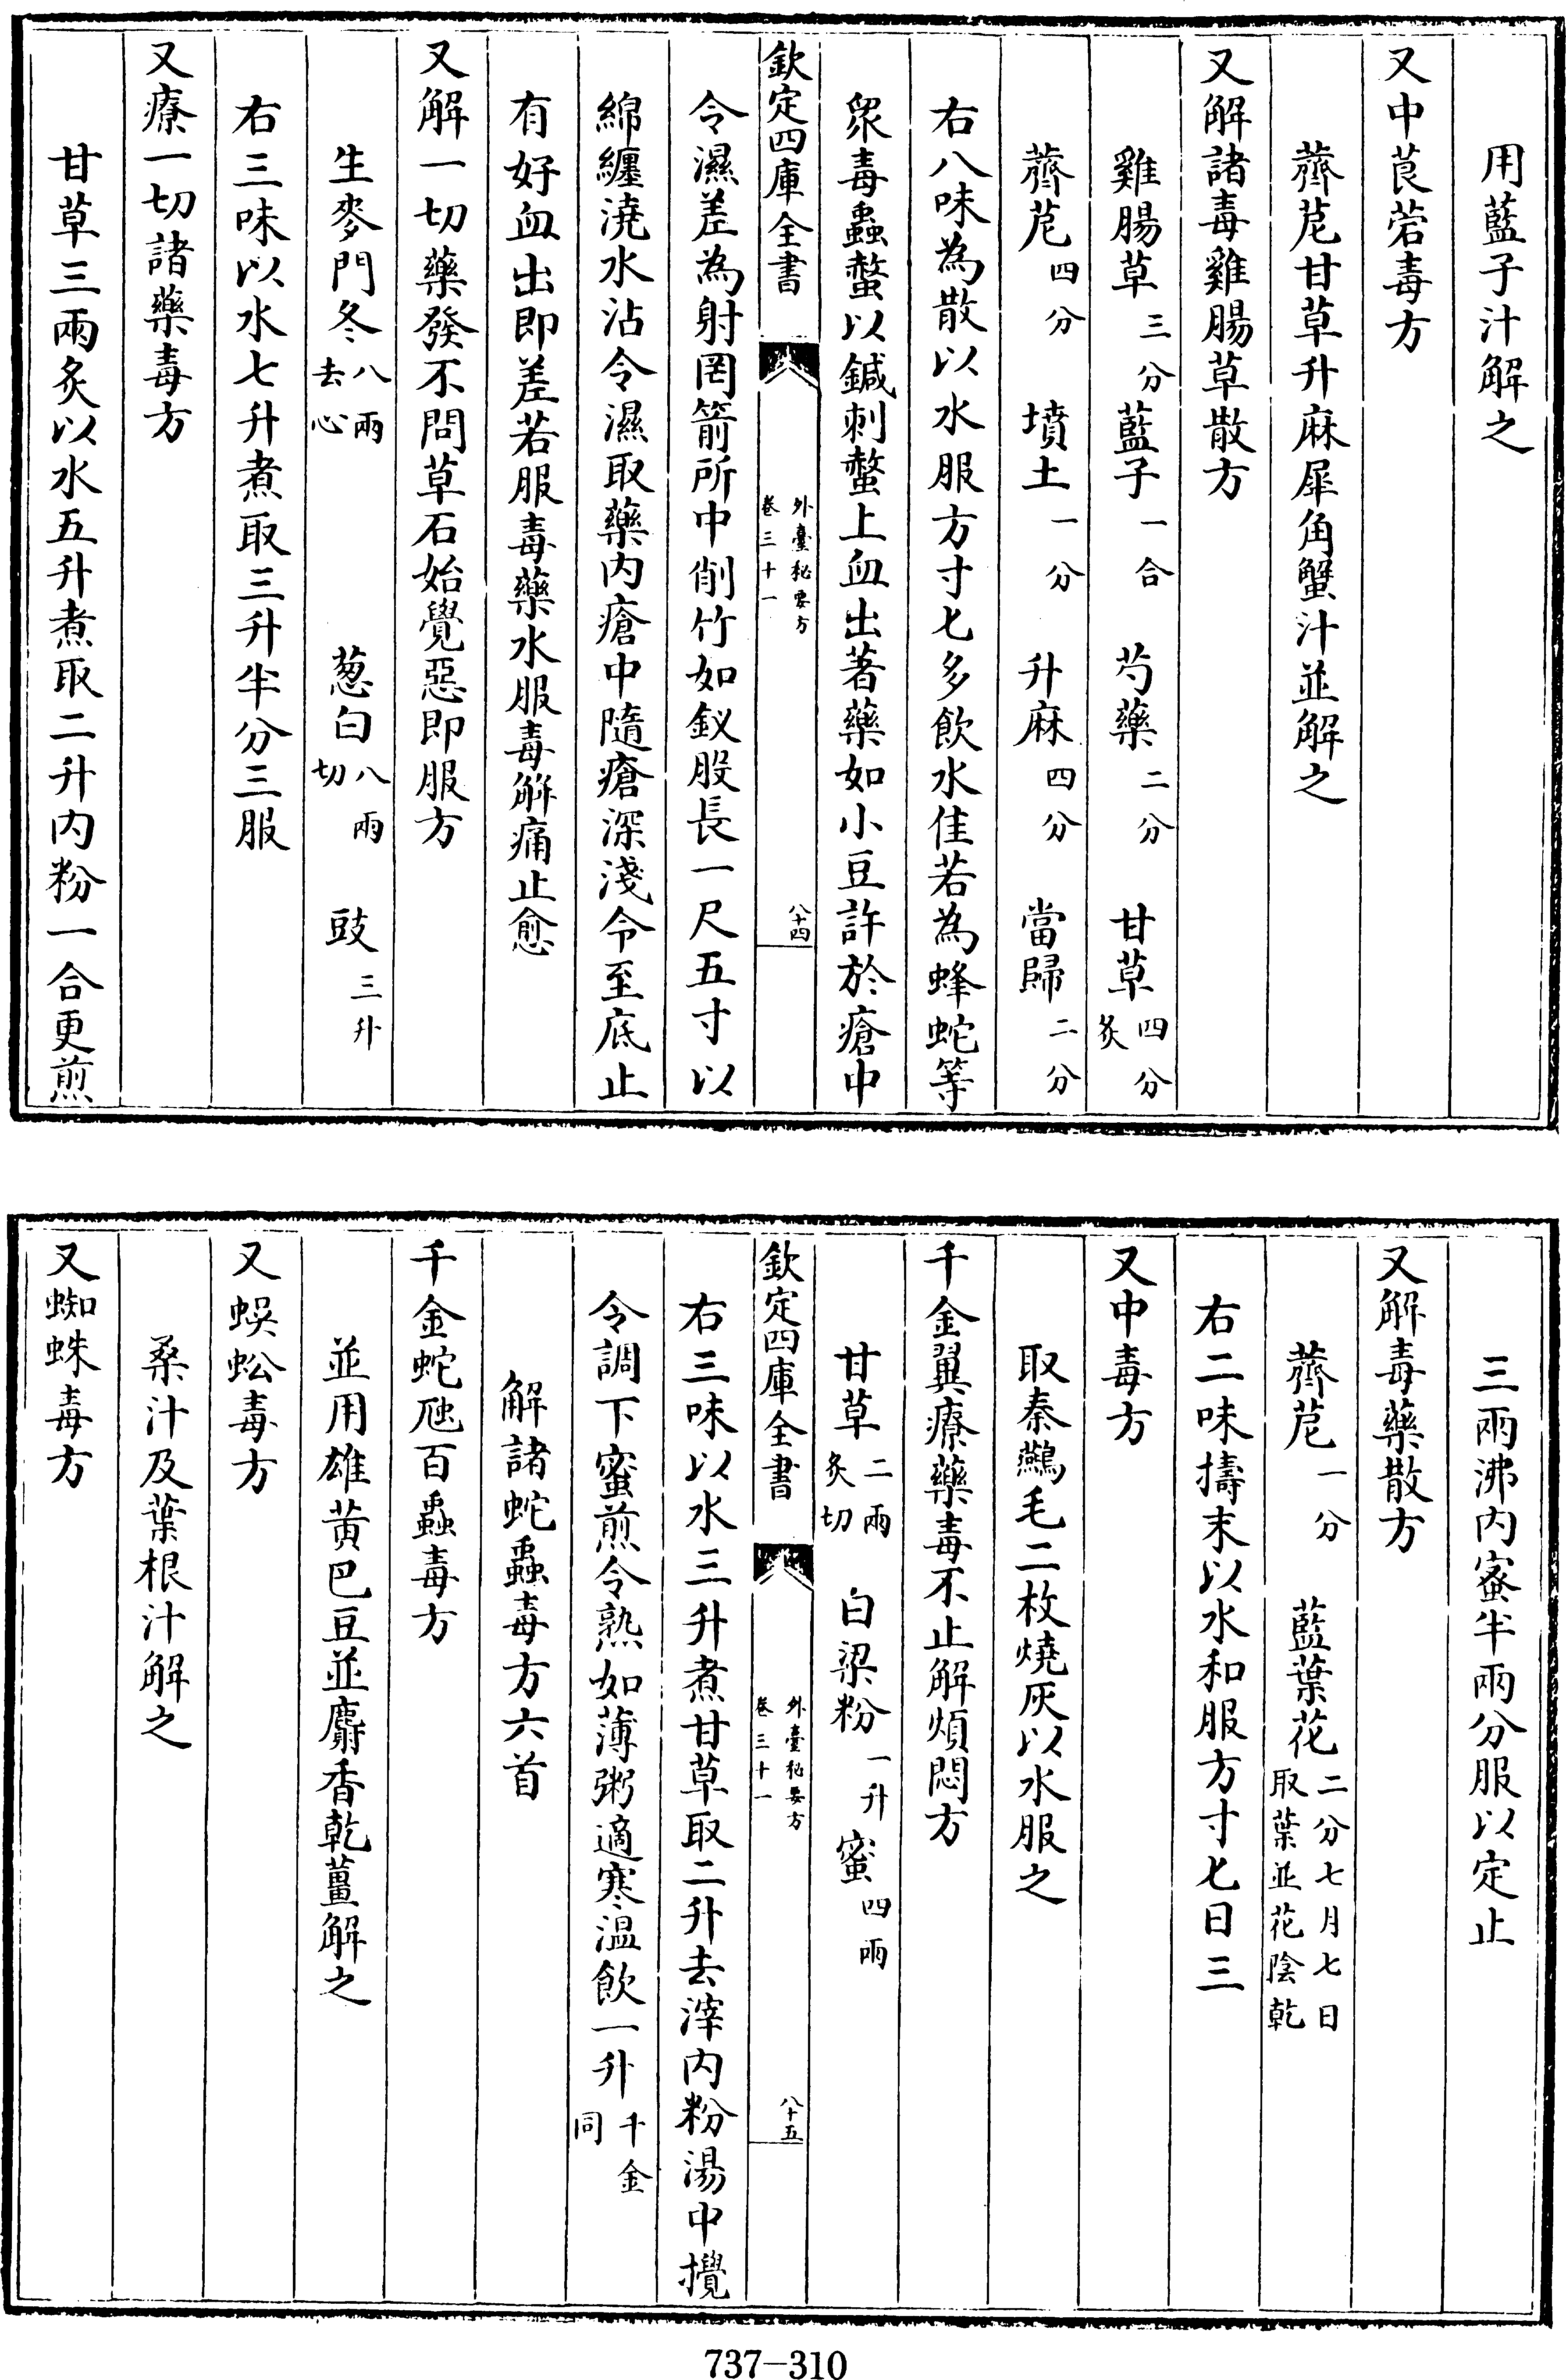 用藍子汁解之
又中莨菪毒方
薺苨甘草升麻犀角蟹汁並解之
又解諸毒雞腸草散方
雞腸草三分 藍子一合 芍藥二分 甘草四分炙
薺苨四分 墳土一分 升麻四分 當歸二分
右八味為散以水服方寸匕多飲水佳若為蜂蛇等
衆毒蟲螫以鍼刺螫上血出著藥如小豆許於瘡中
欽定四庫全書 外臺秘要方 卷三十一 八十四
令濕差為射罔箭所中削竹如釵股長一尺五寸以
綿纏澆水沾令濕取藥内瘡中隨瘡深淺令至底止
有好血出即差若服毒藥水服毒解痛止愈
又解一切藥發不問草石始覺惡即服方
生麥門冬八兩去心 葱白八兩切 豉三升
右三味以水七升煮取三升半分三服
又療一切諸藥毒方
甘草三兩炙以水五升煮取二升内粉一合更煎
三兩沸内蜜半兩分服以定止
又解毒藥散方
薺苨一分 藍葉花二分七月七日取葉並花陰乾
右二味擣末以水和服方寸匕日三
又中毒方
取秦鷰毛二枚燒灰以水服之
千金翼療藥毒不止解煩悶方
甘草二兩炙切 白梁粉一升 蜜四兩
欽定四庫全書 外臺秘要方 卷三十一 八十五
右三味以水三升煮甘草取二升去滓内粉湯中攪
令調下蜜煎令熟如薄粥適寒温飲一升千金同
解諸蛇蟲毒方六首
千金蛇虺百蟲毒方
並用雄黄巴豆並麝香乾薑解之
又蜈蚣毒方
桑汁及葉根汁解之
又蜘蛛毒方
737-310